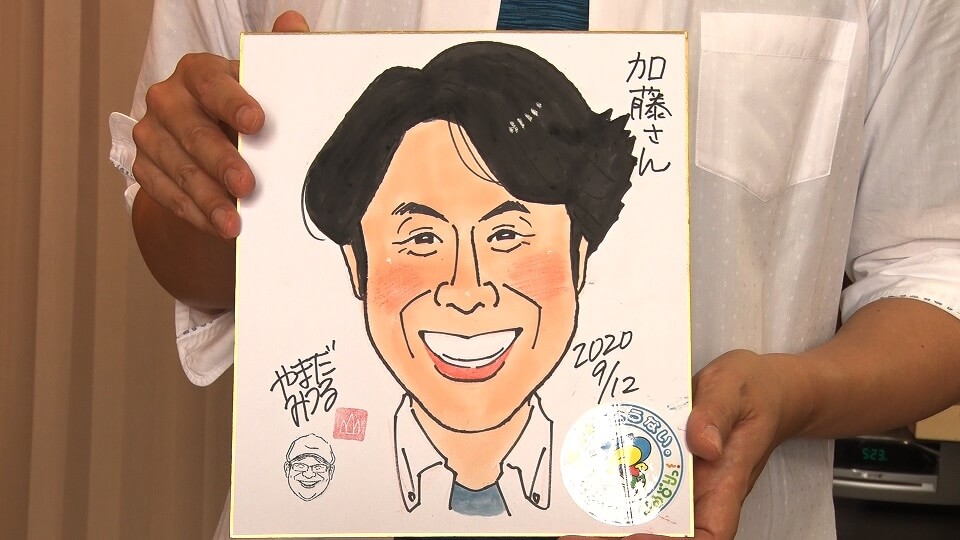 加藤さん
2020
9/12
やまだ
みつる
5:23